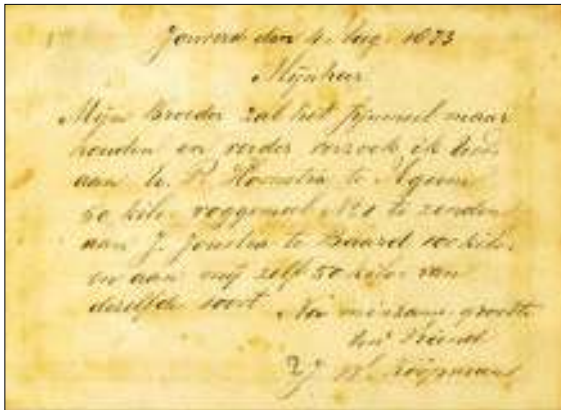 Jouwerd den 4 Aug. 1873
Mijnheer
Mijn Broeder zal het fijnmeel maar
houden en verder verzoek ik
aan R. te
50 kilo roggemeel No 1 te zenden
aan J. te Baard 100 kilo.
en aan mij zelf 50 kilo van
dezelfde soort
Na minzame groete
Uw Vriend